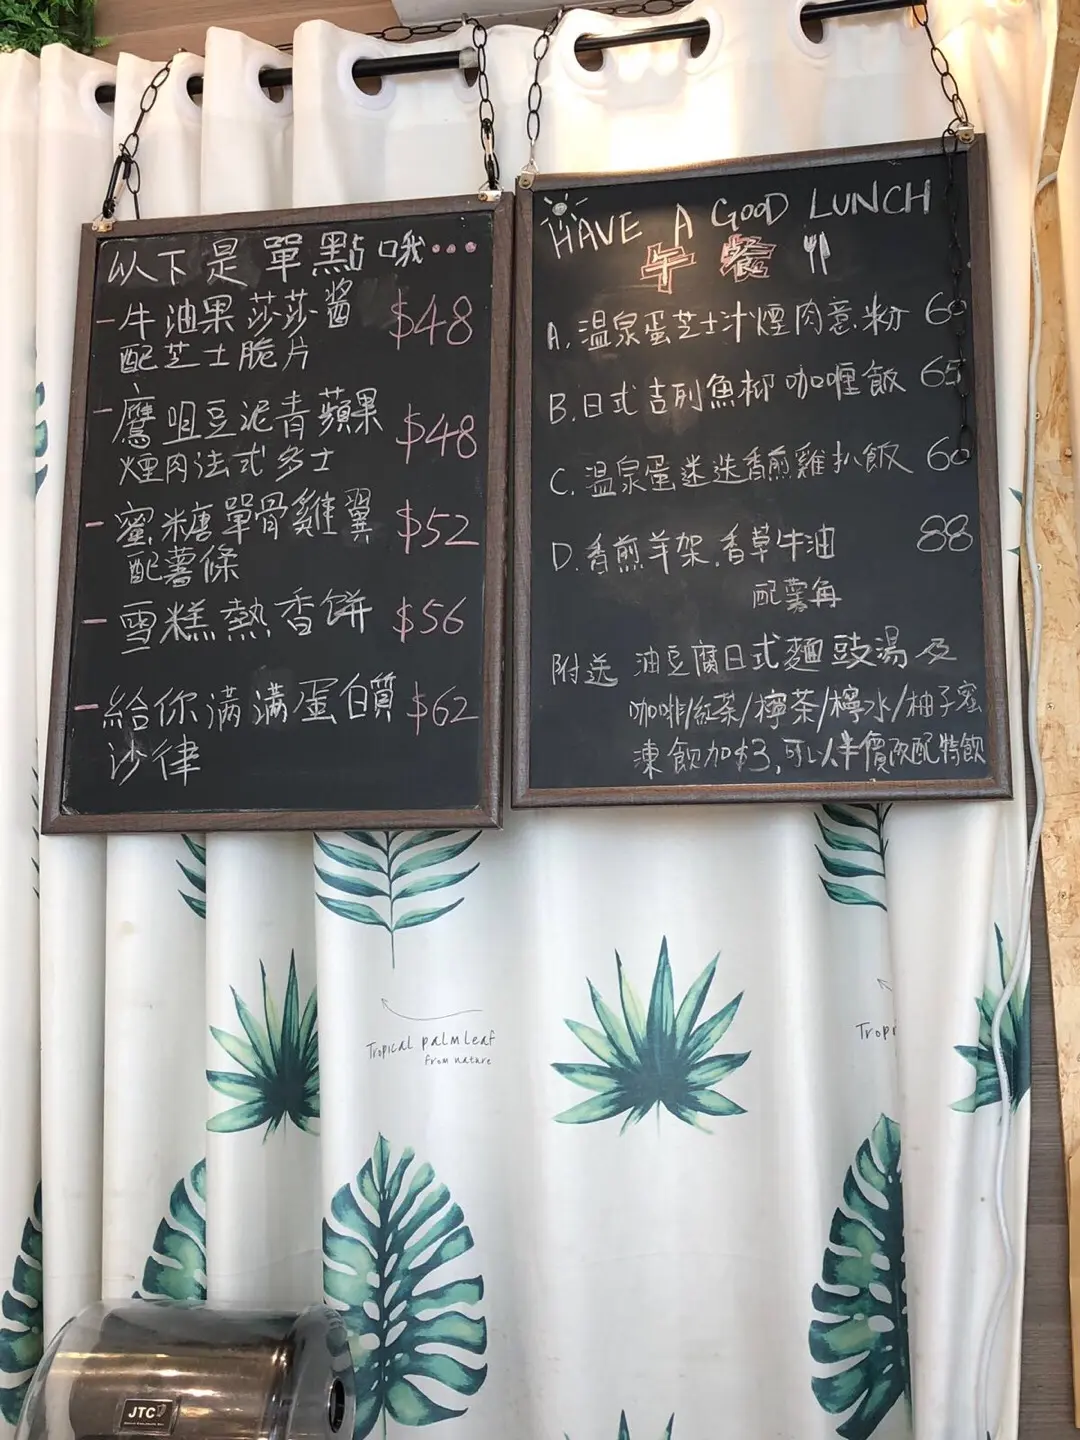 以下是單點哦...
- 牛油果莎莎醬 $48
配芝士脆片
- 鷹咀豆泥青蘋果 $48
煙肉法式多士
- 蜜糖單骨雞翼 $52
配薯條
- 雪糕熱香餅 $56
- 給你滿滿蛋白質 $62
沙律
HAVE A GOOD LUNCH
午餐
A. 溫泉蛋芝士汁煙肉意粉 60
B. 日式吉列魚柳咖喱飯 65
C. 溫泉蛋迷迭香煎雞扒飯 60
D. 香煎羊架.香草牛油 88
配薯角
附送 油豆腐日式麵豉湯及
咖啡/紅茶/檸茶/檸水/柚子蜜
凍飲加$3,可以半價改配特飲
Tropical palm leaf
from nature
Trop
JTC